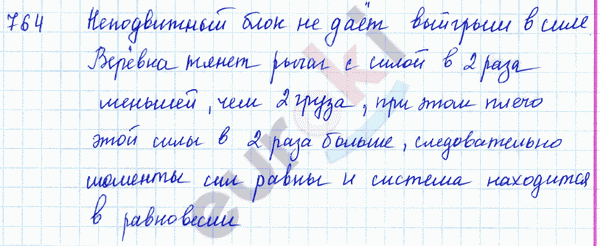 764 Неподвижный блок не даёт выигрыш в силе
Верёвка тянет рычаг с силой в 2 раза
меньшей, чем 2 груза, при этом плечо
этой силы в 2 раза больше, следовательно
моменты сил равны и система находится
в равновесии